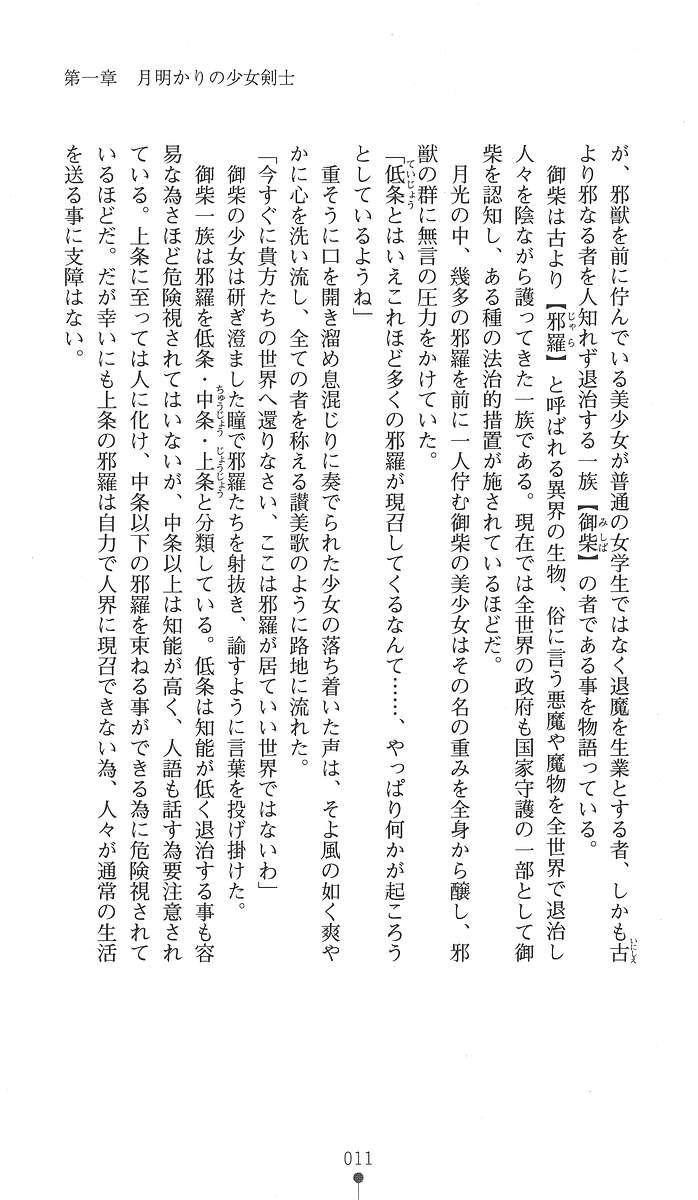 第一章　月明かりの少女剣士
が、邪獣を前に佇んでいる美少女が普通の女学生ではなく退魔を生業とする者、しかも古
より邪なる者を人知れず退治する一族【御柴】の者である事を物語っている。
　御柴は古より【邪羅】と呼ばれる異界の生物、俗に言う悪魔や魔物を全世界で退治し
人々を陰ながら護ってきた一族である。現在では全世界の政府も国家守護の一部として御
柴を認知し、ある種の法治的措置が施されているほどだ。
　月光の中、幾多の邪羅を前に一人佇む御柴の美少女はその名の重みを全身から醸し、邪
獣の群に無言の圧力をかけていた。
「低条とはいえこれほど多くの邪羅が現召してくるなんて……、やっぱり何かが起ころう
としているようね」
　重そうに口を開き溜め息混じりに奏でられた少女の落ち着いた声は、そよ風の如く爽や
かに心を洗い流し、全ての者を称える讃美歌のように路地に流れた。
「今すぐに貴方たちの世界へ還りなさい、ここは邪羅が居ていい世界ではないわ」
　御柴の少女は研ぎ澄ました瞳で邪羅たちを射抜き、諭すように言葉を投げ掛けた。
　御柴一族は邪羅を低条・中条・上条と分類している。低条は知能が低く退治する事も容
易な為さほど危険視されてはいないが、中条以上は知能が高く、人語も話す為要注意され
ている。上条に至っては人に化け、中条以下の邪羅を束ねる事ができる為に危険視されて
いるほどだ。だが幸いにも上条の邪羅は自力で人界に現召できない為、人々が通常の生活
を送る事に支障はない。
011